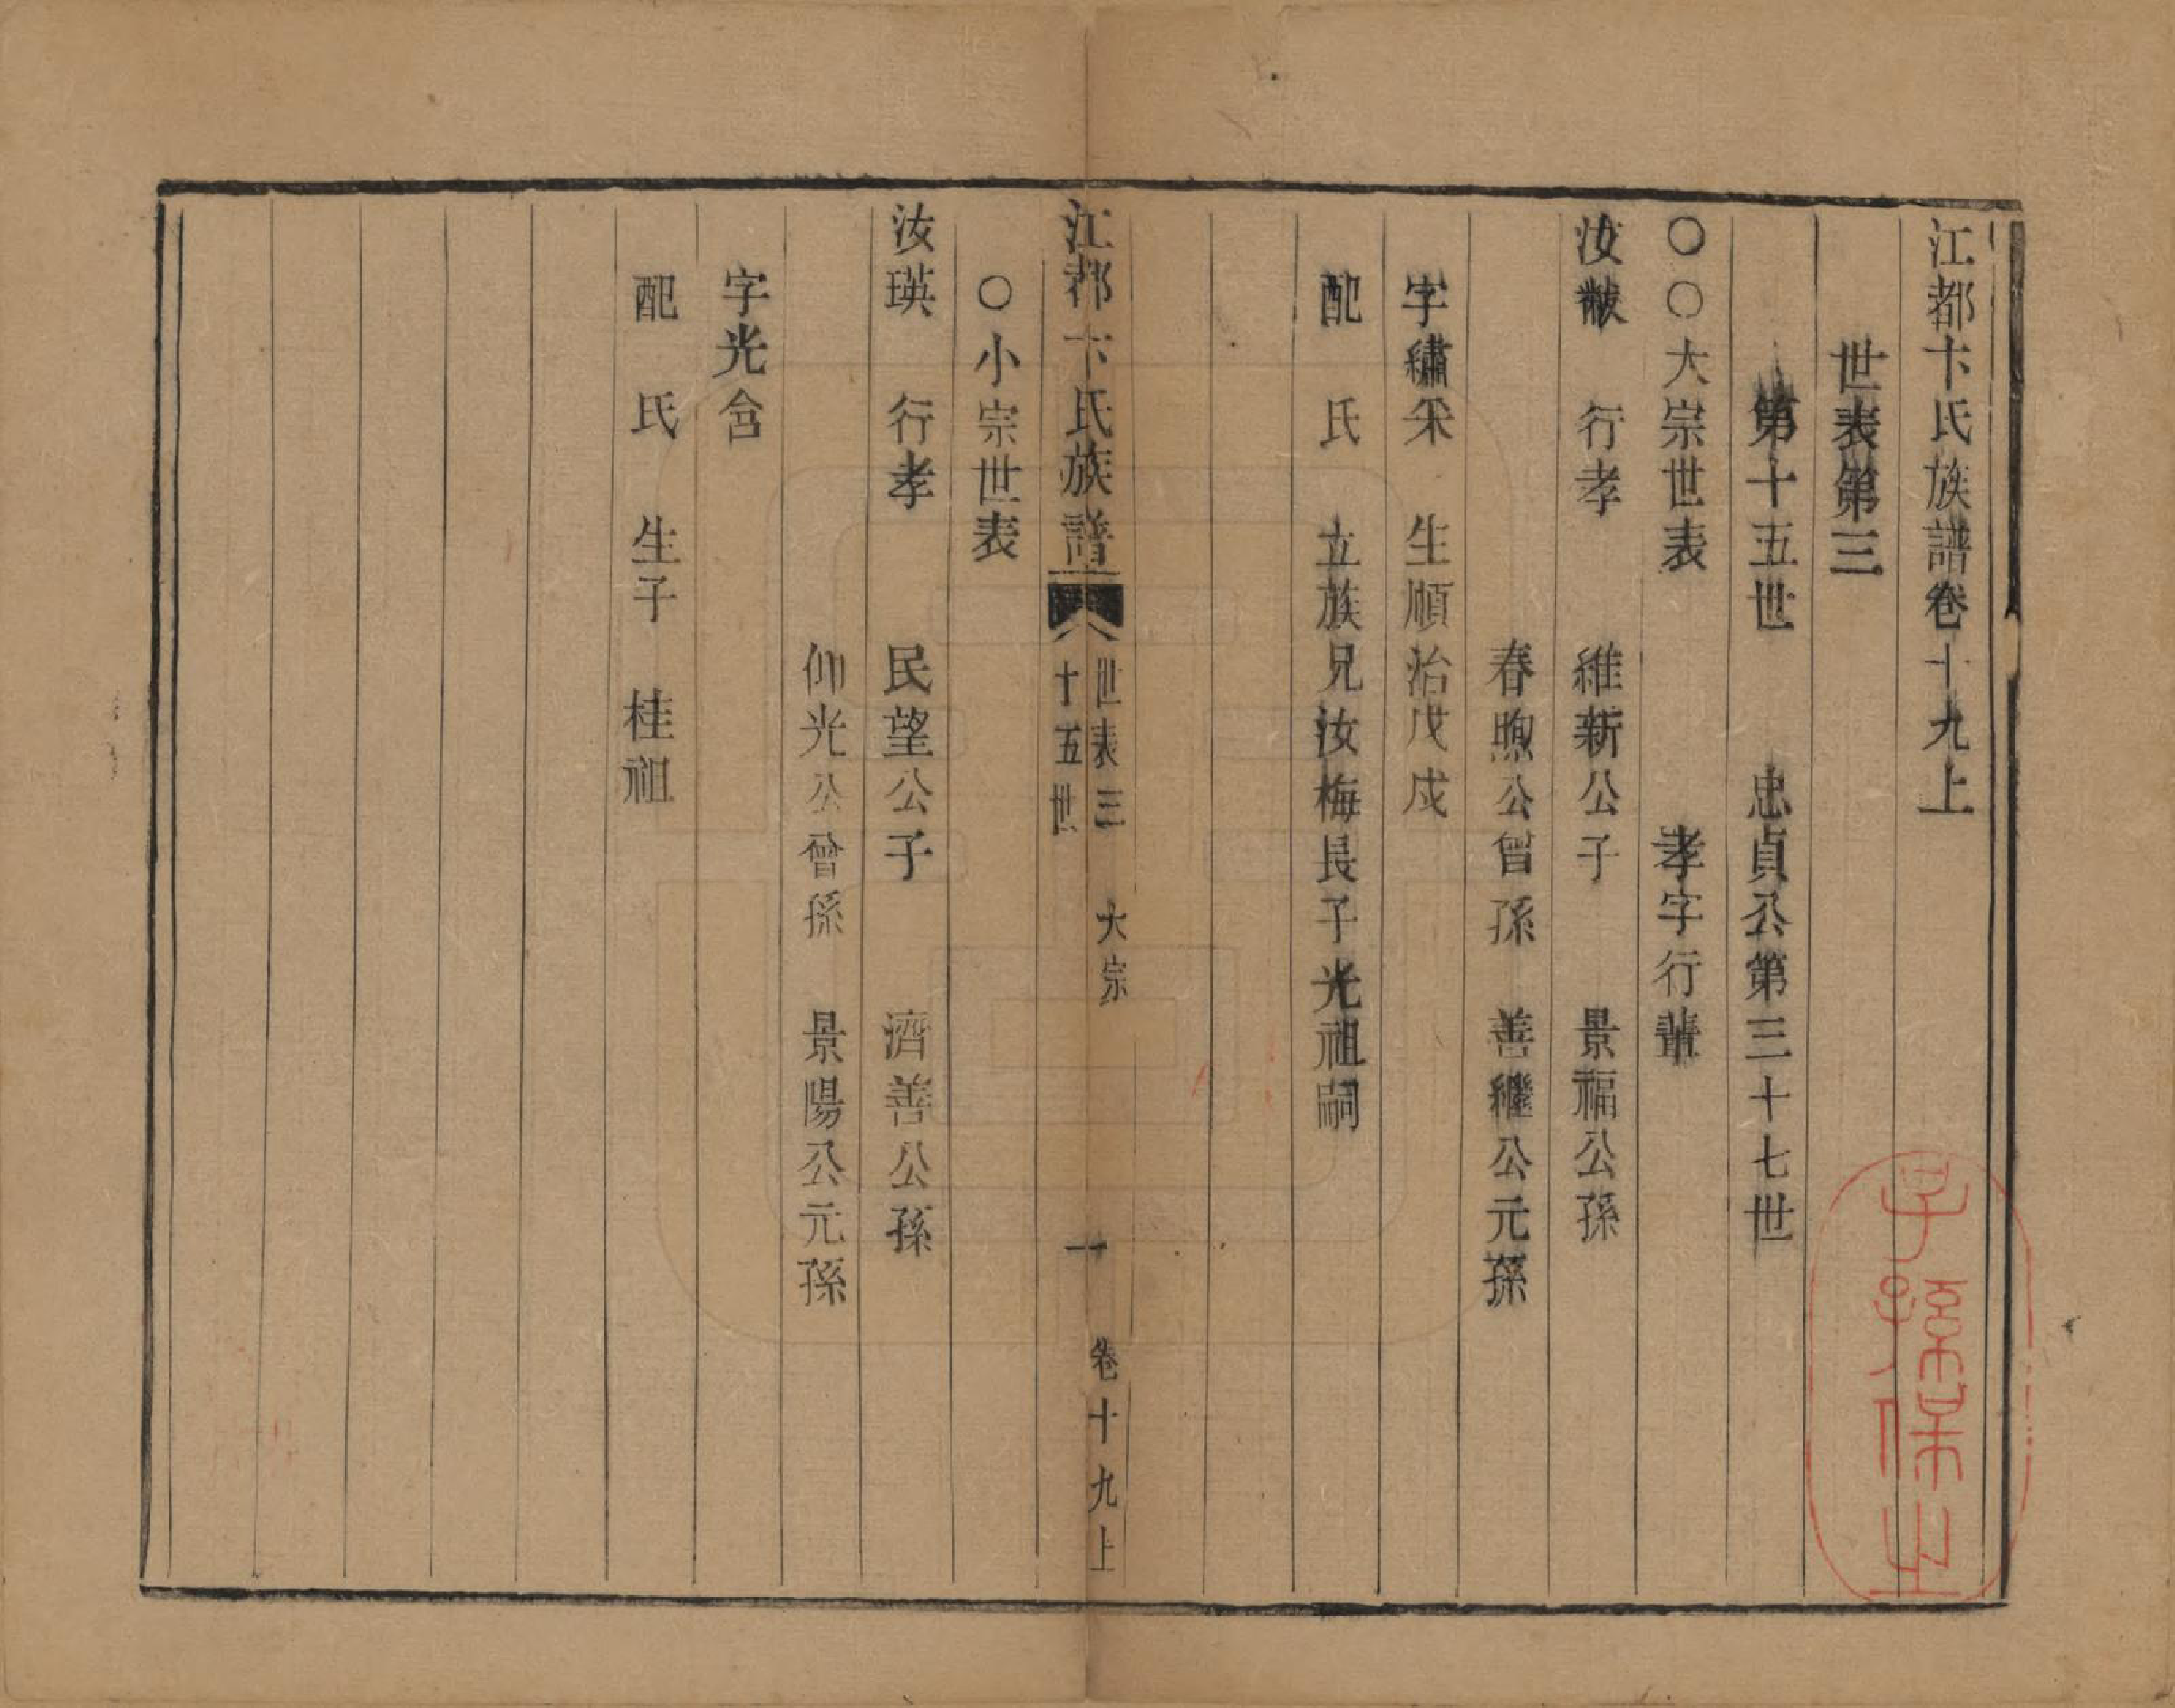 江都卞氏族譜卷十九上
世表第三
第十五世 忠貞公第三十七世
〇〇大宗世表 孝字行輩
汝黻 行孝 維新公子 景福公孫
春煦公曾孫 善繼公元孫
字繡采 生順治戊戌
配 氏 立族兄汝梅長子光祖嗣
江都卞氏族譜 世表三 大宗 十五世 一 卷十九上
〇小宗世表
汝瑛 行孝 民望公子 濟善公孫
仰光公曾孫 景陽公元孫
字光含
配 氏 生子 桂祖
子孫保之